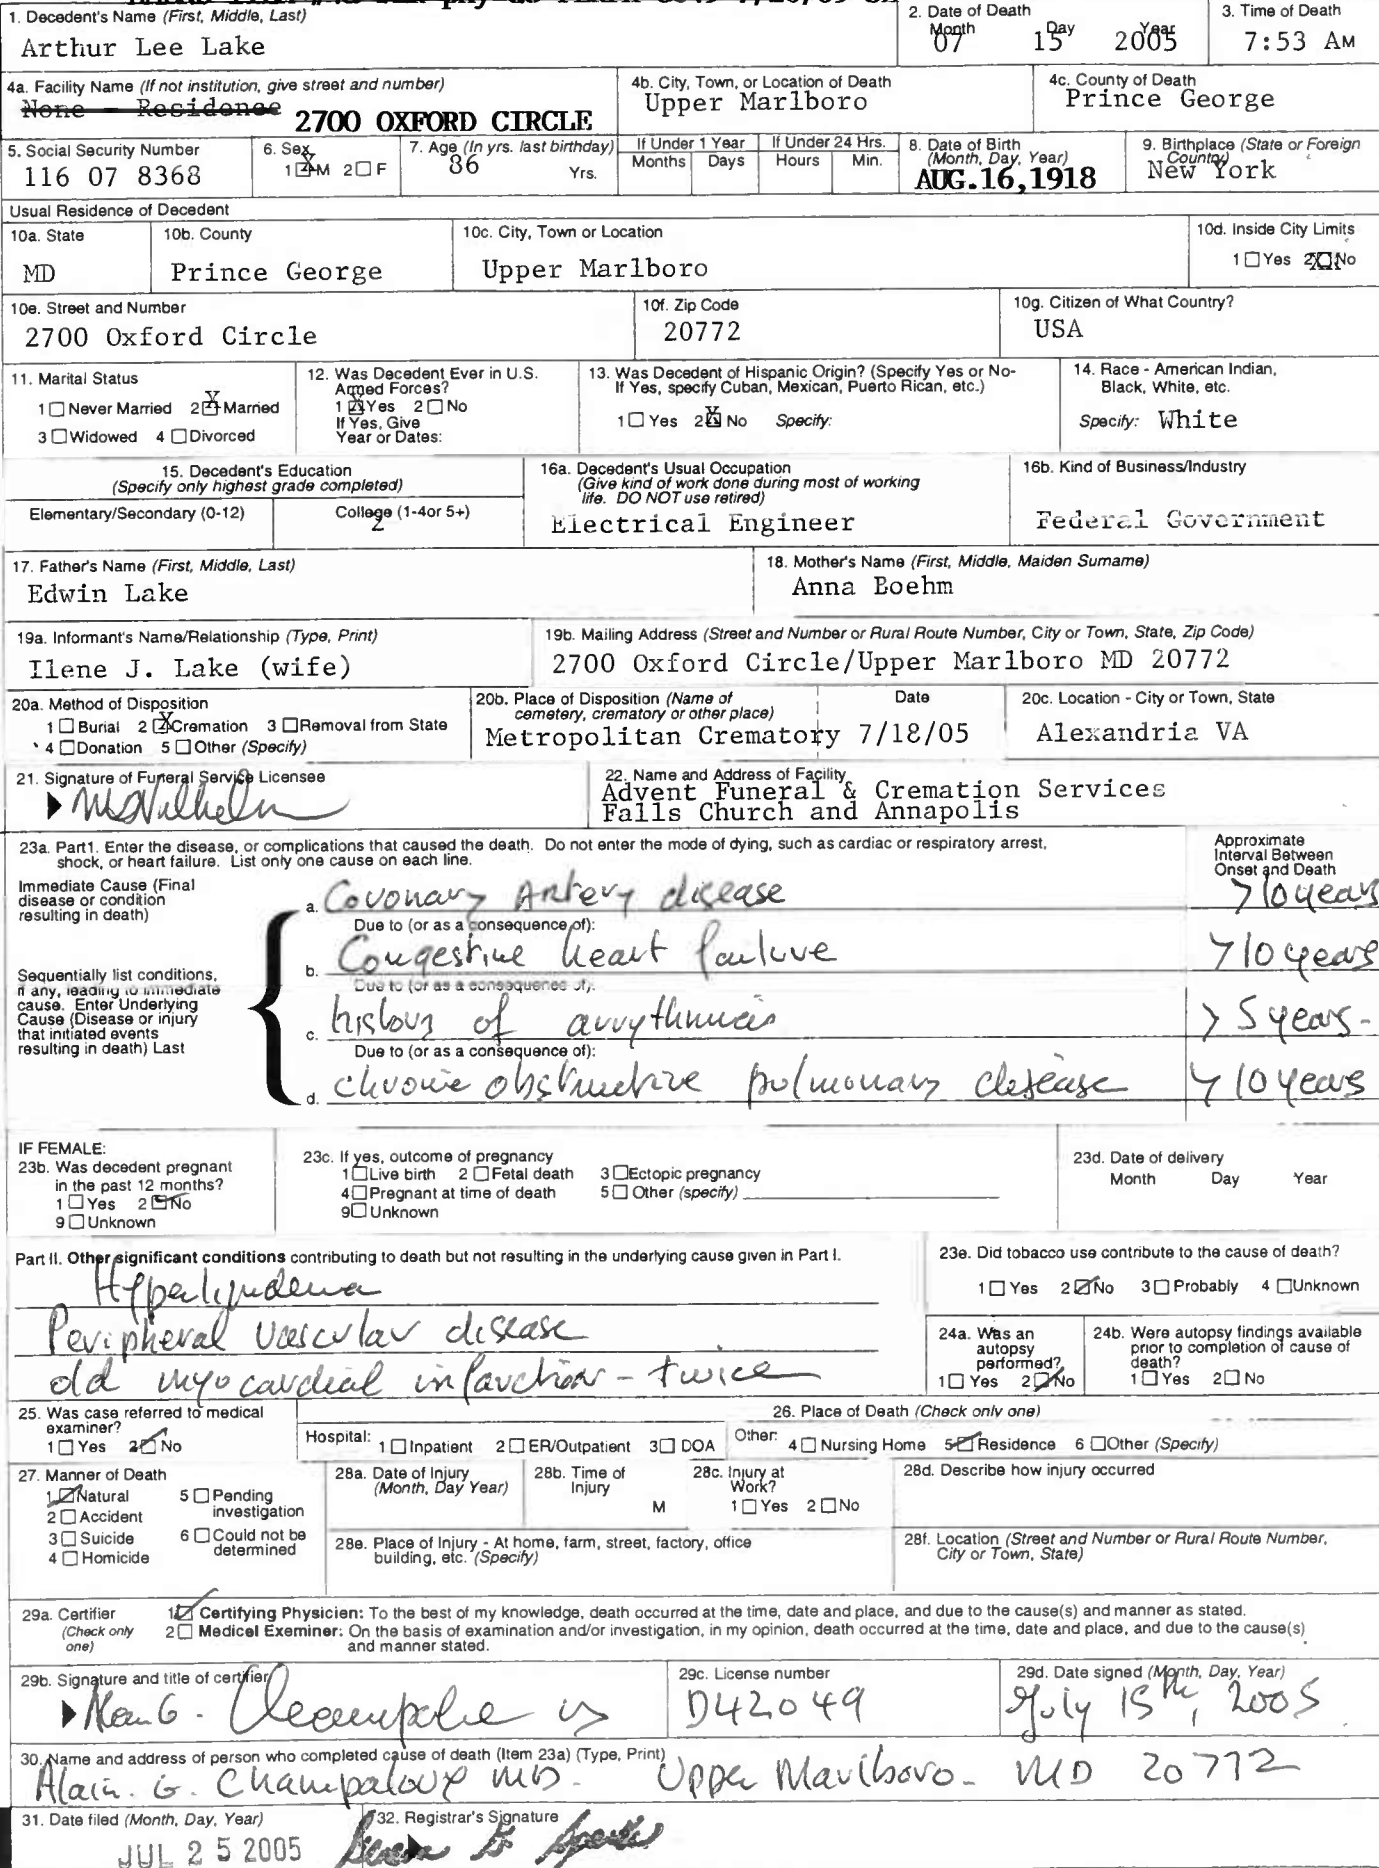 1. Decedent's Name (First, Middle, Last)
Arthur Lee Lake
2. Date of Death
Month Day Year
07 15 2005
3. Time of Death
7:53 AM
4a. Facility Name (If not institution, give street and number)
None - Residence 2700 OXFORD CIRCLE
4b. City, Town, or Location of Death
Upper Marlboro
4c. County of Death
Prince George
5. Social Security Number
116 07 8368
6. Sex
1 X M 2 □ F
7. Age (In yrs. last birthday)
86 Yrs.
If Under 1 Year
Months Days
If Under 24 Hrs.
Hours Min.
8. Date of Birth
(Month, Day, Year)
AUG.16,1918
9. Birthplace (State or Foreign
Country)
New York
Usual Residence of Decedent
10a. State
MD
10b. County
Prince George
10c. City, Town or Location
Upper Marlboro
10d. Inside City Limits
1 □ Yes 2 X No
10e. Street and Number
2700 Oxford Circle
10f. Zip Code
20772
10g. Citizen of What Country?
USA
11. Marital Status
1 □ Never Married 2 X Married
3 □ Widowed 4 □ Divorced
12. Was Decedent Ever in U.S.
Armed Forces?
1 X Yes 2 □ No
If Yes, Give
Year or Dates:
13. Was Decedent of Hispanic Origin? (Specify Yes or No-
If Yes, specify Cuban, Mexican, Puerto Rican, etc.)
1 □ Yes 2 X No Specify:
14. Race - American Indian,
Black, White, etc.
Specify: White
15. Decedent's Education
(Specify only highest grade completed)
Elementary/Secondary (0-12)
College (1-4or 5+)
2
16a. Decedent's Usual Occupation
(Give kind of work done during most of working
life. DO NOT use retired)
Electrical Engineer
16b. Kind of Business/Industry
Federal Government
17. Father's Name (First, Middle, Last)
Edwin Lake
18. Mother's Name (First, Middle, Maiden Surname)
Anna Boehm
19a. Informant's Name/Relationship (Type, Print)
Ilene J. Lake (wife)
19b. Mailing Address (Street and Number or Rural Route Number, City or Town, State, Zip Code)
2700 Oxford Circle/Upper Marlboro MD 20772
20a. Method of Disposition
1 □ Burial 2 X Cremation 3 □ Removal from State
4 □ Donation 5 □ Other (Specify)
20b. Place of Disposition (Name of
cemetery, crematory or other place)
Date
Metropolitan Crematory 7/18/05
20c. Location - City or Town, State
Alexandria VA
21. Signature of Funeral Service Licensee
22. Name and Address of Facility
Advent Funeral & Cremation Services
Falls Church and Annapolis
23a. Part1. Enter the disease, or complications that caused the death. Do not enter the mode of dying, such as cardiac or respiratory arrest,
shock, or heart failure. List only one cause on each line.
Approximate
Interval Between
Onset and Death
Immediate Cause (Final
disease or condition
resulting in death)
a. Coronary Artery disease >10 years
Due to (or as a consequence of):
b. Congestive heart failure >10 years
Sequentially list conditions,
if any, leading to immediate
cause. Enter Underlying
Cause (Disease or injury
that initiated events
resulting in death) Last
Due to (or as a consequence of):
c. history of arrythmias >5 years-
Due to (or as a consequence of):
d. chronic obstructive pulmonary disease >10 years
IF FEMALE:
23b. Was decedent pregnant
in the past 12 months?
1 □ Yes 2 ☑ No
9 □ Unknown
23c. If yes, outcome of pregnancy
1 □ Live birth 2 □ Fetal death 3 □ Ectopic pregnancy
4 □ Pregnant at time of death 5 □ Other (specify)
9 □ Unknown
23d. Date of delivery
Month Day Year
Part II. Other significant conditions contributing to death but not resulting in the underlying cause given in Part I.
Hyperlipidemia
Peripheral vascular disease
old myocardial infarction - twice
23e. Did tobacco use contribute to the cause of death?
1 □ Yes 2 ☑ No 3 □ Probably 4 □ Unknown
24a. Was an
autopsy
performed?
1 □ Yes 2 ☑ No
24b. Were autopsy findings available
prior to completion of cause of
death?
1 □ Yes 2 □ No
25. Was case referred to medical
examiner?
1 □ Yes 2 ☑ No
26. Place of Death (Check only one)
Hospital: 1 □ Inpatient 2 □ ER/Outpatient 3 □ DOA Other: 4 □ Nursing Home 5 ☑ Residence 6 □ Other (Specify)
27. Manner of Death
1 ☑ Natural 5 □ Pending
investigation
2 □ Accident
3 □ Suicide 6 □ Could not be
determined
4 □ Homicide
28a. Date of Injury
(Month, Day Year)
28b. Time of
Injury
M
28c. Injury at
Work?
1 □ Yes 2 □ No
28d. Describe how injury occurred
28e. Place of Injury - At home, farm, street, factory, office
building, etc. (Specify)
28f. Location (Street and Number or Rural Route Number,
City or Town, State)
29a. Certifier
(Check only
one)
1 ☑ Certifying Physicien: To the best of my knowledge, death occurred at the time, date and place, and due to the cause(s) and manner as stated.
2 □ Medicel Exeminer: On the basis of examination and/or investigation, in my opinion, death occurred at the time, date and place, and due to the cause(s)
and manner stated.
29b. Signature and title of certifier
29c. License number
D42049
29d. Date signed (Month, Day, Year)
July 15th, 2005
30. Name and address of person who completed cause of death (Item 23a) (Type, Print)
Alain. G. Champaloux MD. Upper Marlboro- MD 20772
31. Date filed (Month, Day, Year)
JUL 25 2005
32. Registrar's Signature